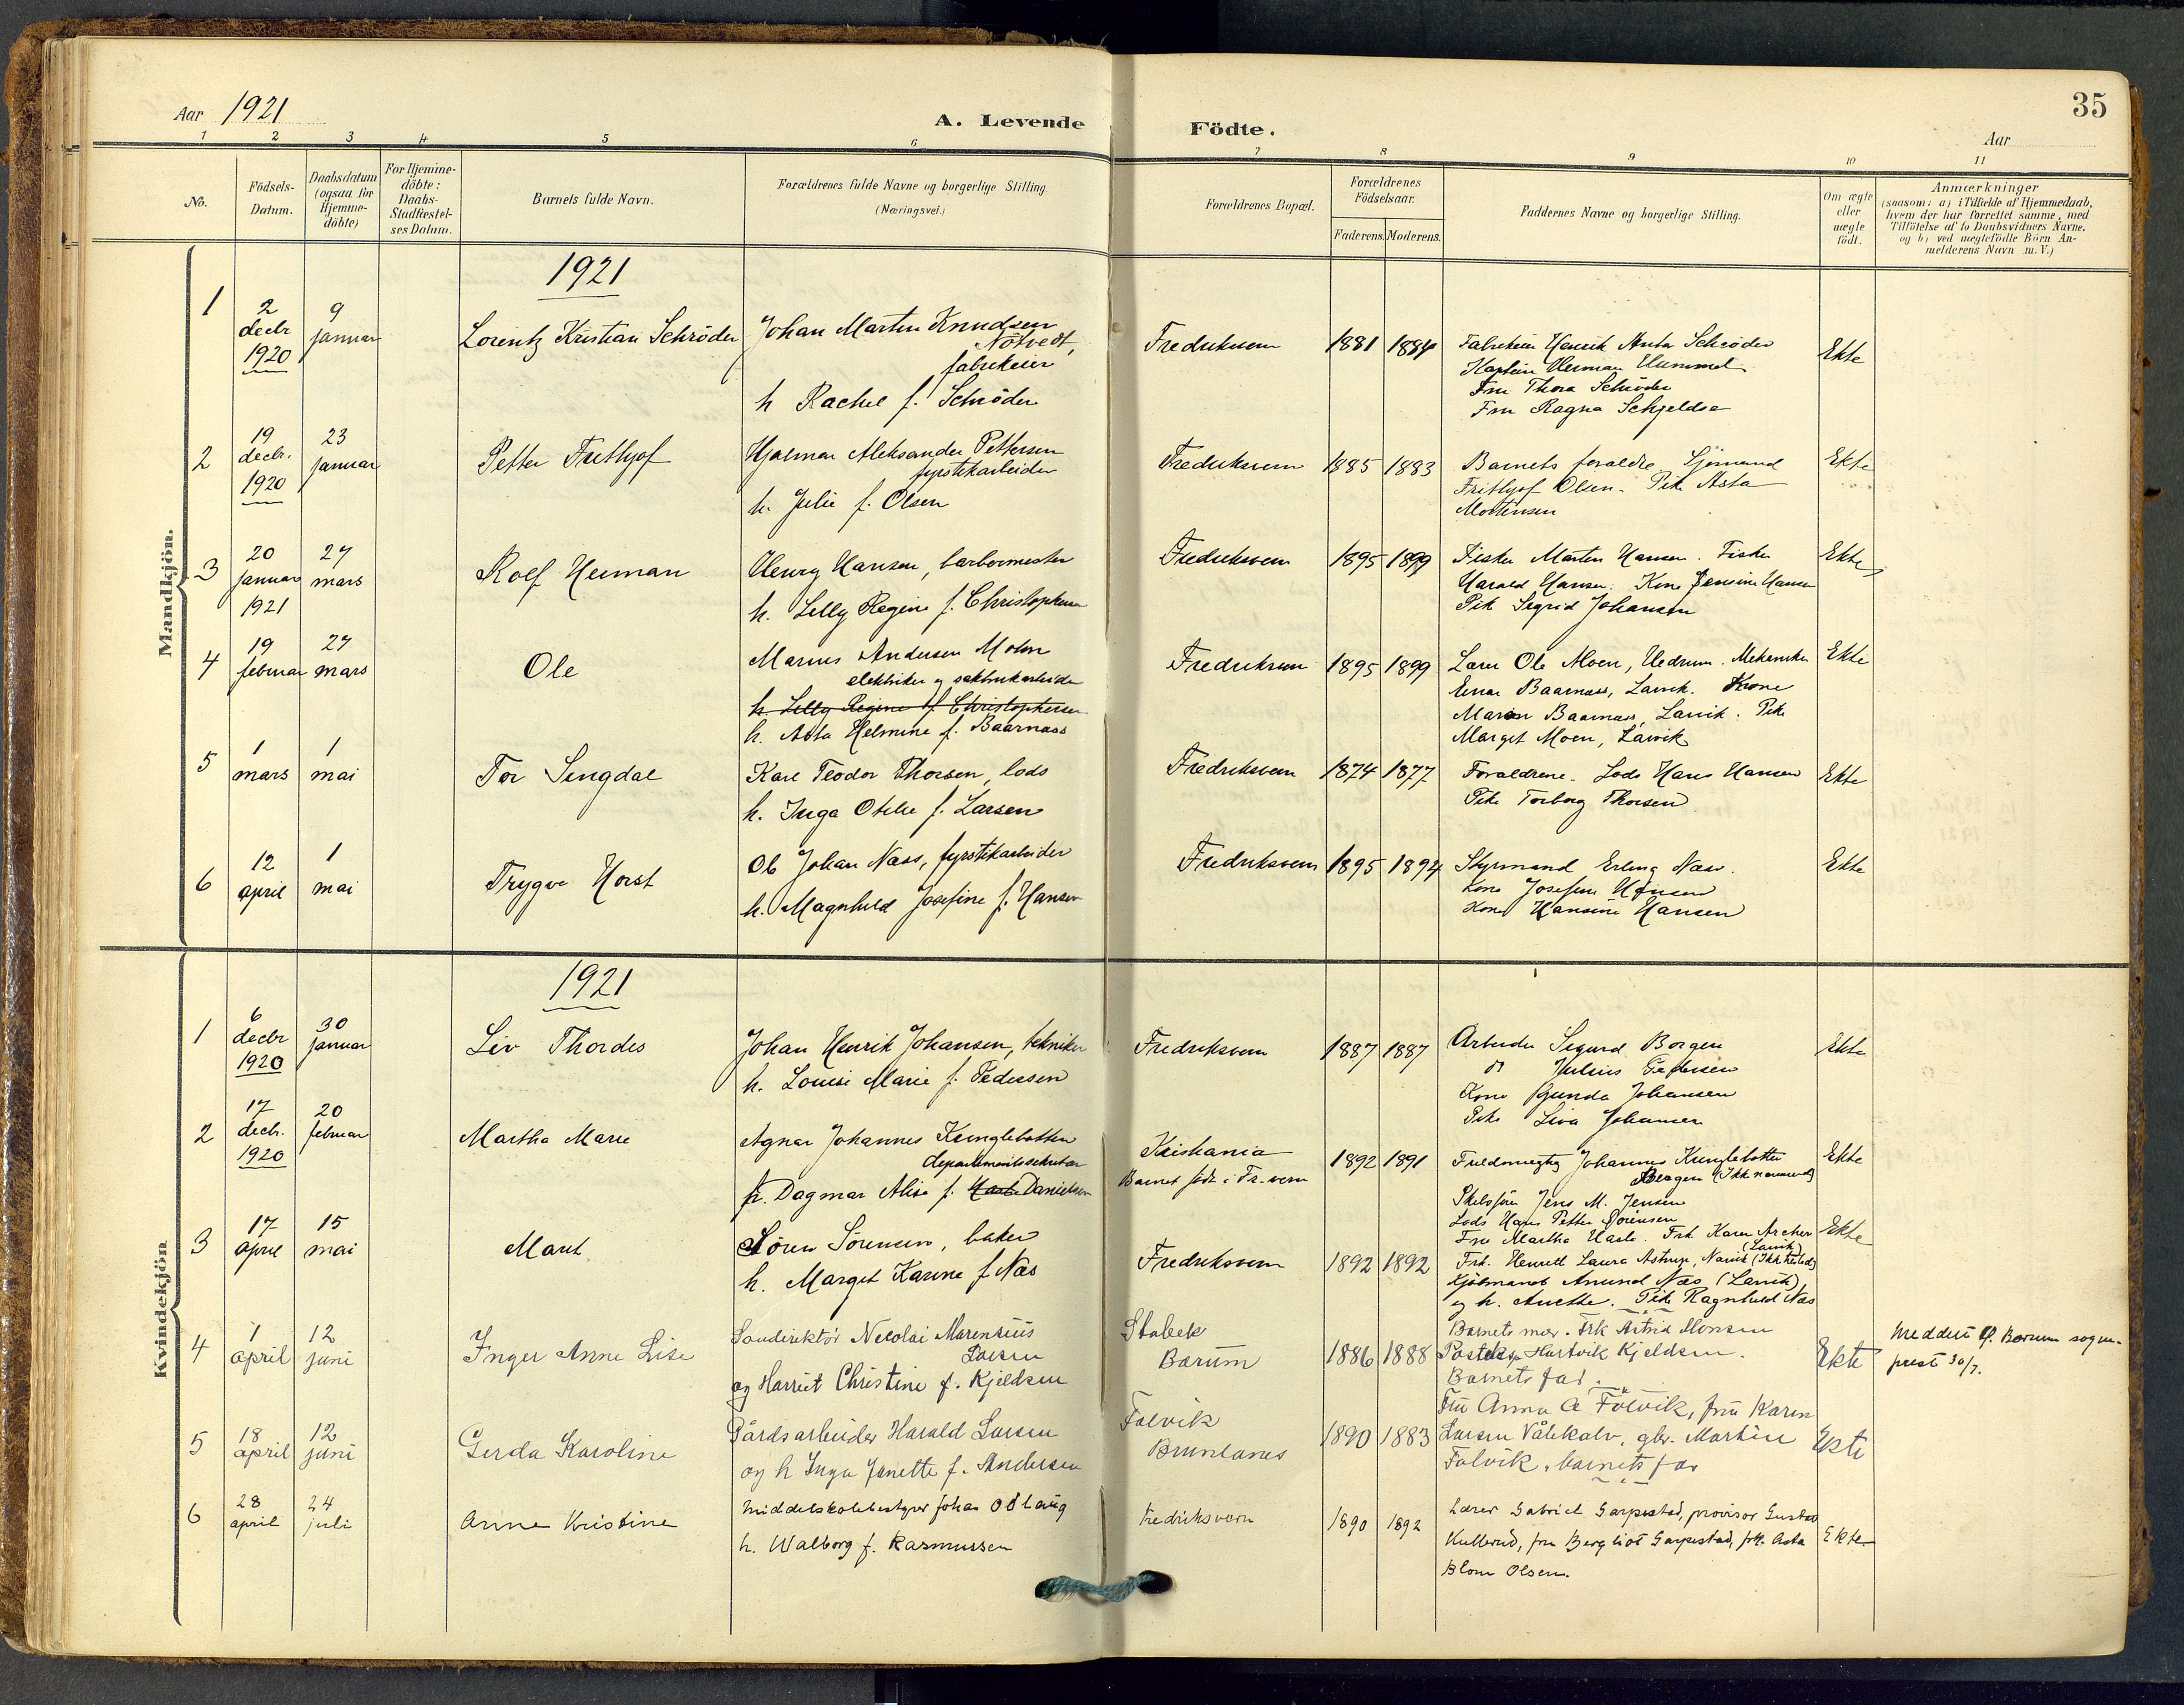 35
Aar 1921
A. Levende Födte.
Aar
1 2 3 4 5 6 7 8 9 10 11
No.
Födsels-
Datum.
Daabsdatum
(ogsaa for
Hjemme-
döbte)
For Hjemme-
döbte:
Daabs-
Stadfæstel-
ses Datum.
Barnets fulde Navn.
Forældrenes fulde Navne og borgerlige Stilling.
(Næringsvei.)
Forældrenes Bopæl.
Forældrenes
Födselsaar.
Faderens.
Moderens.
Faddernes Navne og borgerlige Stilling.
Om ægte
eller
uægte
födt.
Anmærkninger
(saasom: a) i Tilfælde af Hjemmedaab,
hvem der har forrettet samme, med
Tilföielse af to Daabsvidners Navne,
og b) ved uægtefödte Börn An-
melderens Navn m. V.)
Mandkjön.
1921
1
2
decbr
1920
9
januar
Lorentz Kristian Schröder
Johan Martin Knudsen
Nötvedt,
fabrikeier
h Rachel f. Schröder
Fredriksvern
1881
1884
Fabrikeier Henrik Anton Schröder
Kaptein Herman Hummel
Fru Thora Schröder
Fru Ragna Schjeldsø
Ekte
2
19
decbr.
1920
23
januar
Petter Frithjof
Hjalmar Aleksander Pettersen
fyrstikarbeider
h. Julie f. Olsen
Fredriksvern
1885
1883
Barnets foraldre. Sjömand
Frithjof Olsen. Pike Asta
Mortensen
Ekte
3
20
januar
1921
27
mars
Rolf Herman
Henry Hansen, barbermester
h. Lelly Regine f. Christophersen
Fredriksvern
1895
1899
Fisker Marten Hansen. Fisker
Harald Hansen. Kone Jensine Hansen
Pik Sigrid Johansen
Ekte
4
19
februar
27
mars
Ole
Marius Andersen Moen
elektriker og sakbrukarbeider
h. Lelly Regine f. Christophersen
h. Asta Helmine f. Baarnaas
Fredriksvern
1895
1899
Lærer Ole Moen, Hedrum. Mekaniker
Einar Baarnaas, Larvik. Kone
Maren Baarnaas, Larvik. Pike
Margit Moen, Larvik
Ekte
5
1
mars
1
mai
Tor Sengdal
Karl Teodor Thorsen, lods
h. Inga Otilie f. Larsen
Fredriksvern
1874
1877
Foraldrene. Lods Hans Hansen
Pike Torborg Thorsen
Ekte
6
12
april
1
mai
Trygve Horst
Ole Johan Næss, fyrstikarbeider
h. Magnhild Josefine f. Hansen
Fredriksvern
1895
1894
Styrmand Erling Næss.
Kone Josefine Hansen
Kone Hansine Hansen
Ekte
Kvindekjön
1921
1
6
decbr
1920
30
januar
Liv Thordis
Johan Henrik Johansen, tekniker
h. Louise Marie f. Pedersen
Fredriksvern
1887
1887
Arbeider Sigurd Borgen
Julius Pedersen
Kone Gunda Johansen
Pike Liva Johansen
Ekte
2
17
decbr.
1920
20
februar
Martha Marie
Agnar Johannes Kringlebotten
departementssekretær
h. Dagmar Alise f. Danielsen
Kristiania
Barnet född i Fr.vern
1892
1891
Fuldmegtig Johannes Kringlebotten
Bergen (Ikke nærværende)
Skibsförer Jens M. Jensen
Lods Hans Petter Sörensen
Fru Martha Hasle. Frk. Karen Archer
(Larvik)
Frk. Henriette Laura Astrup, Narvik (Ikke tilstede)
Ekte
3
17
april
15
mai
Marit
Sören Sörensen, baker
h. Margit Karine f Næs
Fredriksvern
1892
1892
Kjöbmand Amund Næs (Larvik)
og h. Anethe. Pike Ragnhild Næs
Ekte
4
1
april
12
juni
Inger Anne Lise
Nicolai Marensius
Larsen
og Harriet Christine f. Kjeldsen
Stabek
Bærum
1886
1888
Barnets mor. Frk Astrid Monsen
Postekso. Hartvik Kjeldsen.
Barnets far.
Ekte
meddelt Bærum sogne-
prest 30/7.
5
18
april
12
juni
Gerda Karoline
Gårdsarbeider Harald Larsen
og h Inga Janette f. Andersen
Folvik
Brunlanes
1890
1883
Fru Anna A Folvik, fru Karen
Larsen Vålekalv, gbr. Martin
Folvik, barnets far
Ekte
6
28
april
24
juli
Anne Kristine
Middelskolebestyrer Johan Odlaug
h. Walborg f. Rasmussen
Fredriksvern
1890
1892
Lærer Gabriel Garpestad, provisor Gustav
Kullerud, fru Bergliot Garpestad, frk. Asta
Blom Olsen.
Ekte